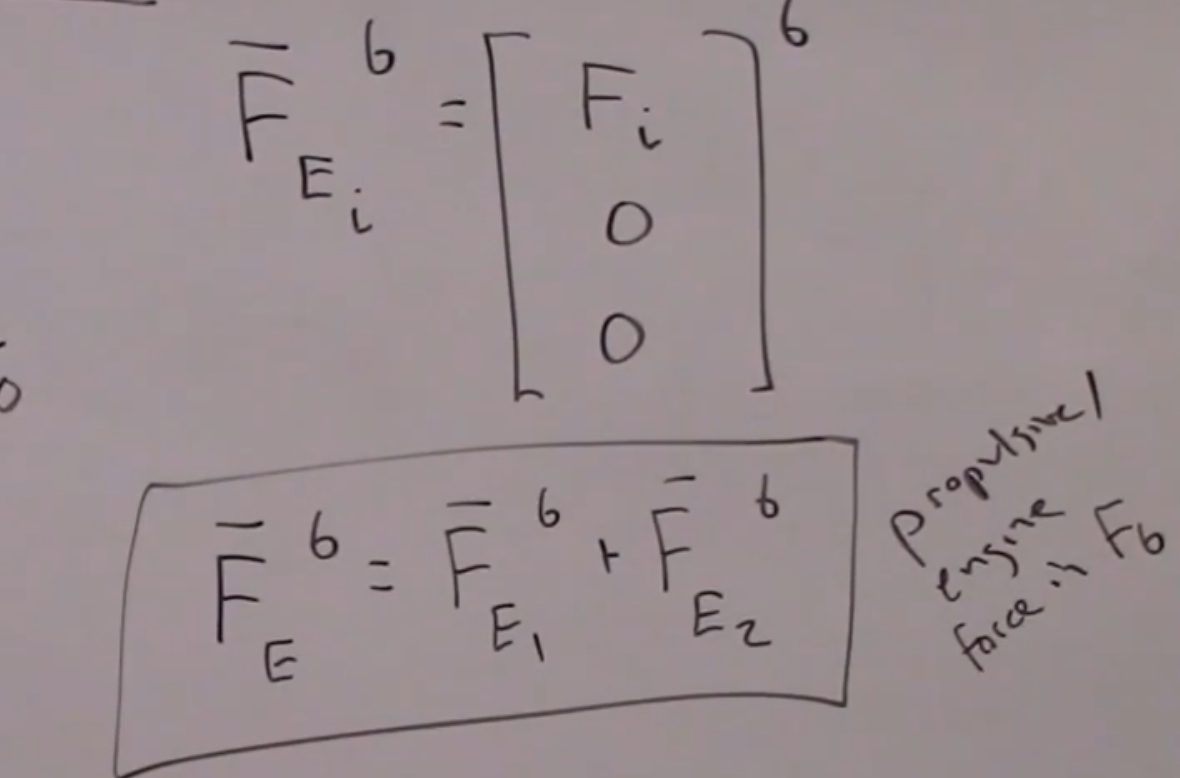 F̄_{E_i}^b = [F_i 0 0]^b
F̄_E^b = F̄_{E_1}^b + F̄_{E_2}^b
propulsive/
engine
force in F_b